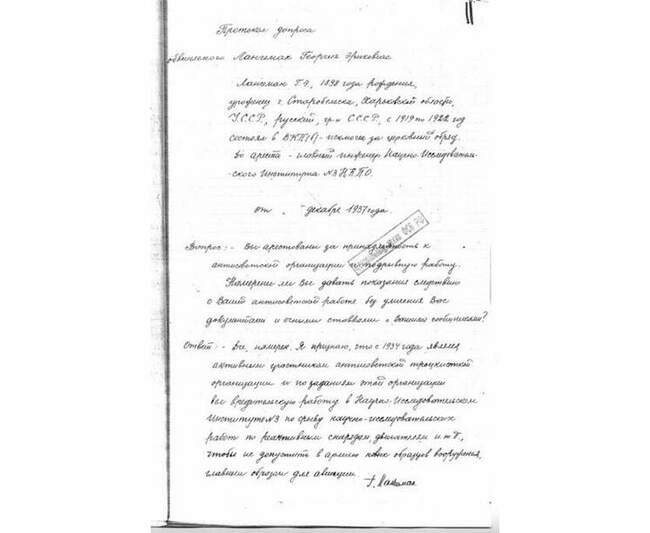 11
Протокол допроса
обвиняемого Лангемак Георгия Эриховича
Лангемак Г.Э, 1898 года рождения,
уроженец г. Старобельска, Харьковской области,
УССР, русский, гр-н СССР, с 1919 по 1922 год
состоял в ВКП(б) - исключен за церковный обряд.
До ареста - главный инженер Научно-Исследователь-
ского Института №3 НКПО.
от " - декабря 1937 года.
ФСБ РФ
Вопрос: - Вы арестованы за принадлежность к
антисоветской организации и подрывную работу.
Намерены ли Вы давать показания следствию
о Вашей антисоветской работе без уличения Вас
документами и очными ставками с Вашими сообщниками?
Ответ: - Да, намерен. Я признаю, что с 1934 года являлся
активным участником антисоветской троцкистской
организации и по заданиям этой организации
вел вредительскую работу в Научно-Исследовательском
Институте №3 по срыву научно-исследовательских
работ по реактивным снарядам, двигателям и т.п.,
чтобы не допустить в армию новых образцов вооружения,
главным образом для авиации.
Г. Лангемак